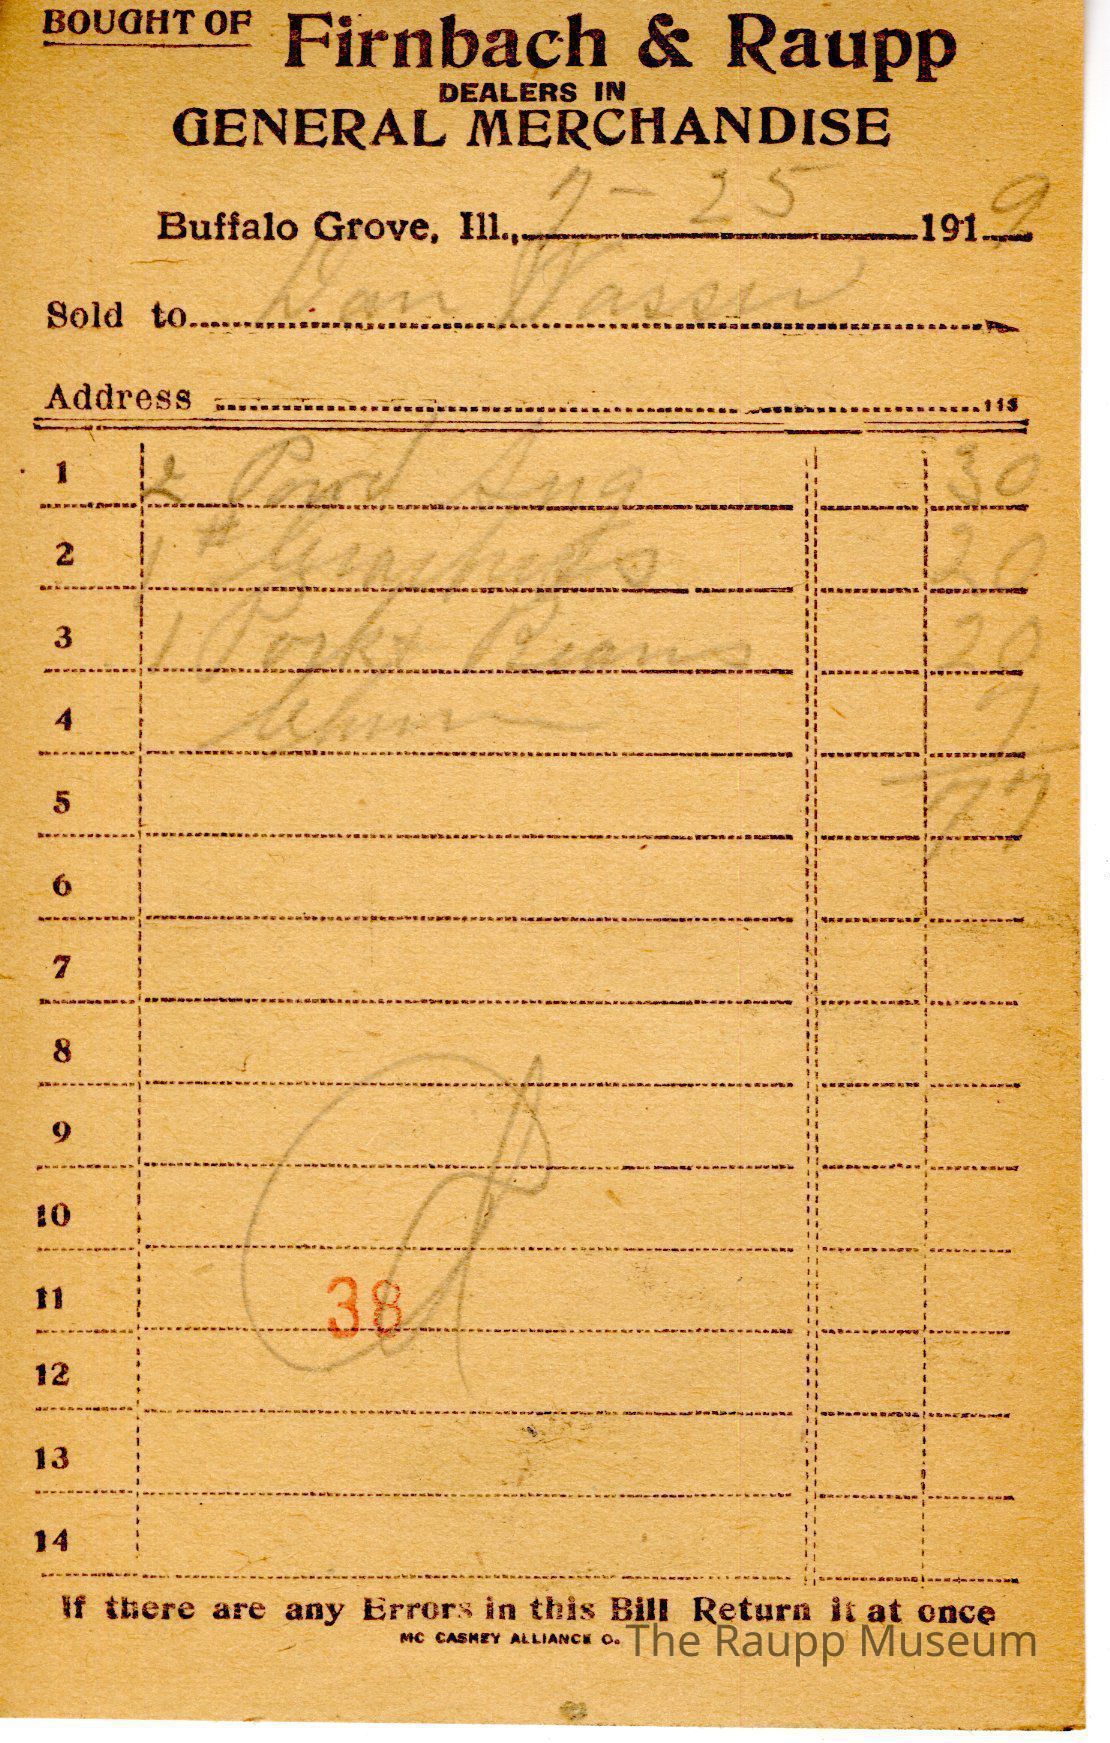 BOUGHT OF Firnbach & Raupp
DEALERS IN
GENERAL MERCHANDISE
Buffalo Grove, Ill., 7-25 1919
Sold to Dan Wasser
Address 113
1 2 Powd Sug 30
2 1 # 20
3 1 Pork & Beans 20
4 7
5 77
6
7
8
9
10
11 38
12
13
14
If there are any Errors in this Bill Return it at once
MC CASKEY ALLIANCE O.
The Raupp Museum